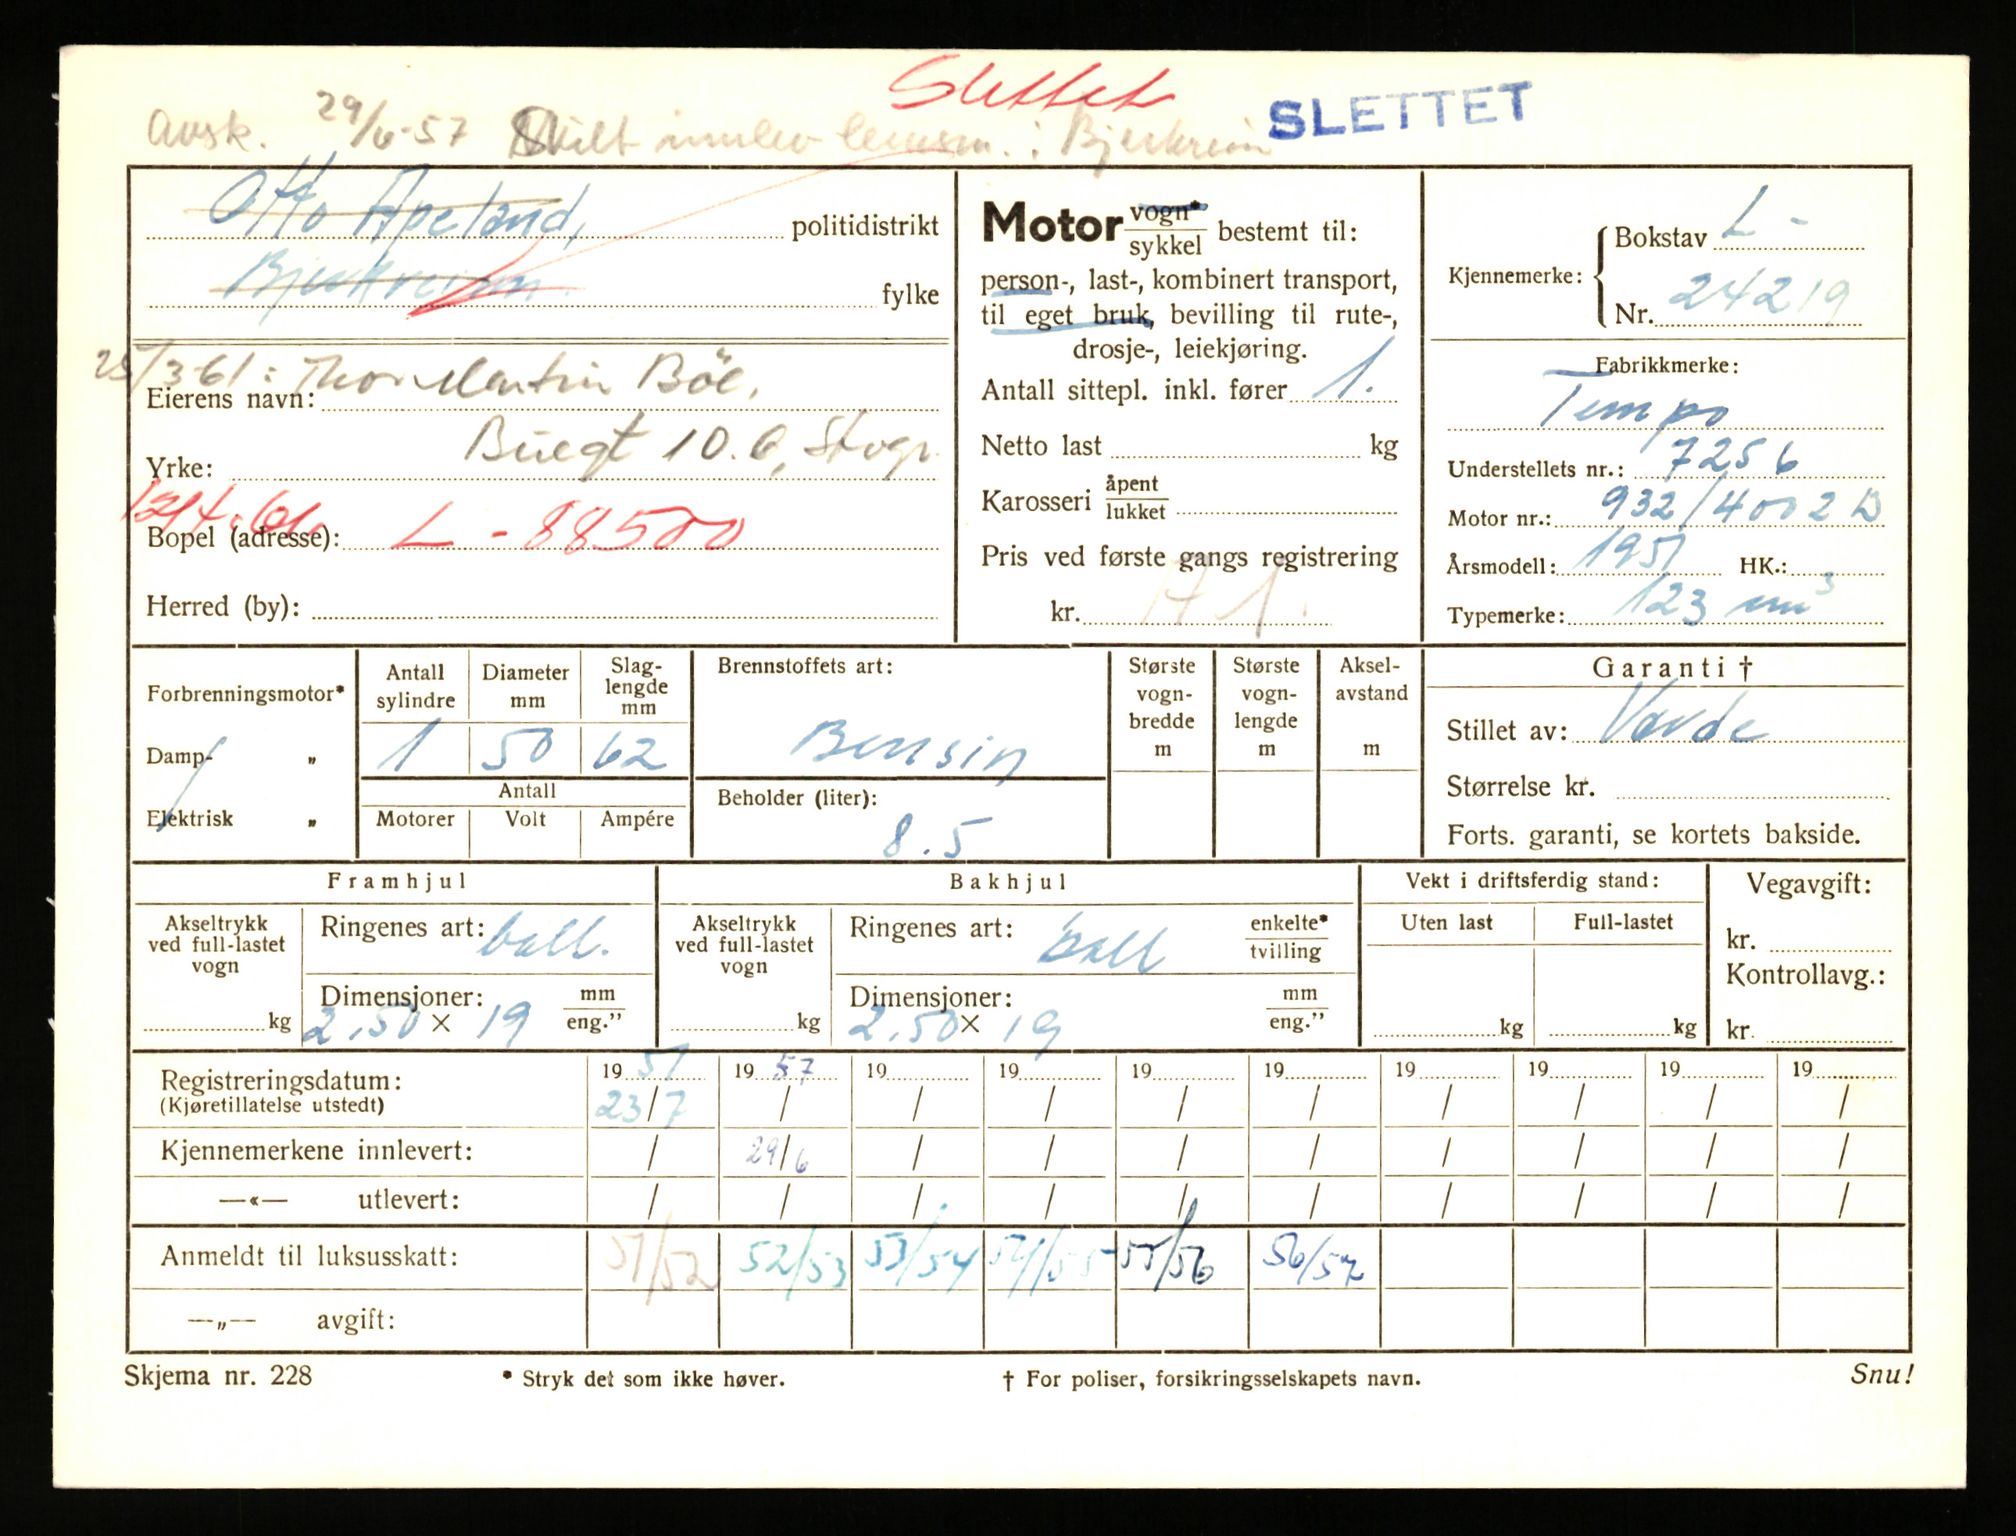 Slettet
SLETTET
Avsk. 29/6-57 Skilt innlev lensm. i Bjerkreim
Otto Apeland, politidistrikt
Bjerkreim fylke
25/3-61: Thor Martin Böe,
Eierens navn:
10.6, Stvgr.
Yrke:
12/4-61
Bopel (adresse): L - 88500
Herred (by):
Motor vogn*/sykkel bestemt til:
person-, last-, kombinert transport,
til eget bruk, bevilling til rute-,
drosje-, leiekjøring.
Antall sittepl. inkl. fører 1.
Netto last kg
Karosseri åpent/lukket
Pris ved første gangs registrering
kr.
Kjennemerke: Bokstav L -
Nr. 24219
Fabrikkmerke:
Tempo
Understellets nr.: 7256
Motor nr.: 932/4002 B
Årsmodell: 1951 HK.:
Typemerke: 123 cm³
Forbrenningsmotor*
Damp- „
Elektrisk „
Antall sylindre 1
Diameter mm 50
Slag-lengde mm 62
Antall
Motorer Volt Ampére
Brennstoffets art:
Bensin
Beholder (liter):
8.5
Største vogn-bredde m
Største vogn-lengde m
Aksel-avstand m
Garanti †
Stillet av: Varde
Størrelse kr.
Forts. garanti, se kortets bakside.
Framhjul
Akseltrykk ved full-lastet vogn
kg
Ringenes art: ball.
Dimensjoner: mm/eng.”
2.50 × 19
Bakhjul
Akseltrykk ved full-lastet vogn
kg
Ringenes art: ball enkelte*/tvilling
Dimensjoner: mm/eng.”
2.50 × 19
Vekt i driftsferdig stand:
Uten last Full-lastet
kg kg
Vegavgift:
kr.
Kontrollavg.:
kr.
Registreringsdatum: 19 51 19 57 19 19 19 19 19 19 19 19
(Kjøretillatelse utstedt) 23/7 / / / / / / / / /
Kjennemerkene innlevert: / 29/6 / / / / / / / /
—«— utlevert: / / / / / / / / / /
Anmeldt til luksusskatt: 51/52 52/53 53/54 54/55 55/56 56/57
—„— avgift:
Skjema nr. 228 * Stryk det som ikke høver. † For poliser, forsikringsselskapets navn. Snu!